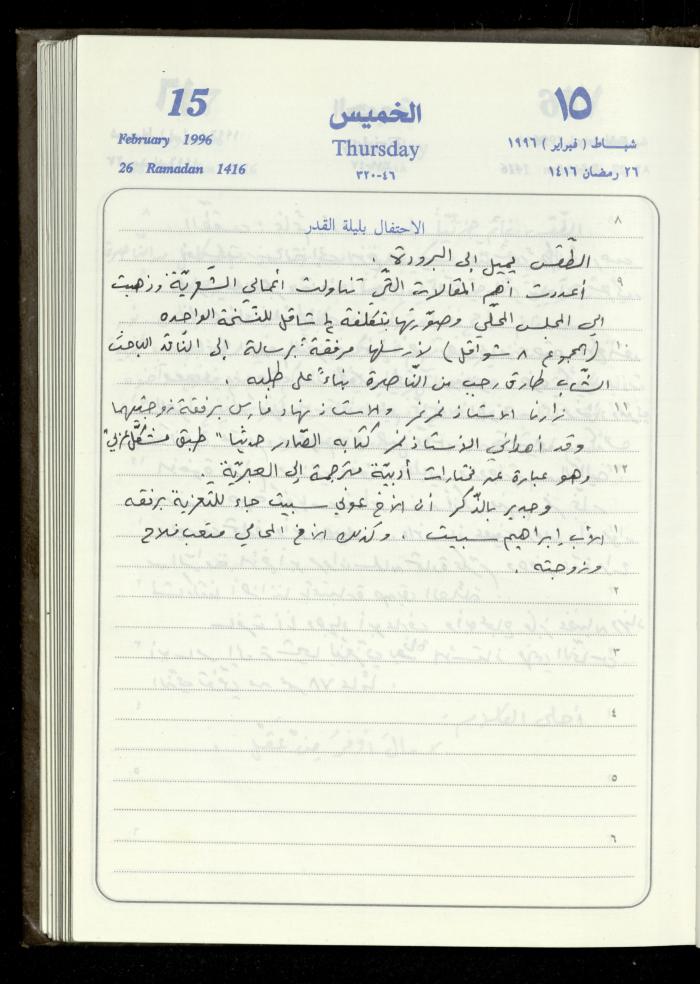 15
February 1996
26 Ramadan 1416
الخميس
Thursday
٤٦-٣٢٠
١٥
شبــاط ( فبراير ) ١٩٩٦
٢٦ رمضان ١٤١٦
٨
الاحتفال بليلة القدر
الطّقس يميل إلى البرودة .
٩
أعددت أهم المقالات التّي تناولت أعمالي الشّعريّة وذهبت
إلى المجلس المحلّي وصوّرتها بتكلفة ٤ شاقل للنّسخة الواحده
١٠
( المجموع ٨ شواقل ) لأرسلها مرفقة برسالة إلى النّاقد الباحث
الشّاب طارق رجب من النّاصرة بناءً على طلبه .
١١
زارنا الاستاذ نمر نمر والاستاذ نهاد فارس برفقة زوجتيهما
وقد أهداني الأستاذ نمر كتابه الصّادر حديثا " طبق مشكّل عربي "
١٢
وهو عبارة عن مختارات أدبيّة مترجمة إلى العبريّة .
وجدير بالذّكر أن الأخ عوني سبيت جاء للتّعزية برفقه
١
الأب إبراهيم سبيت . وكذلك الأخ المحامي متعب فلاح
وزوجته .
٢
٣
٤
٥
٦